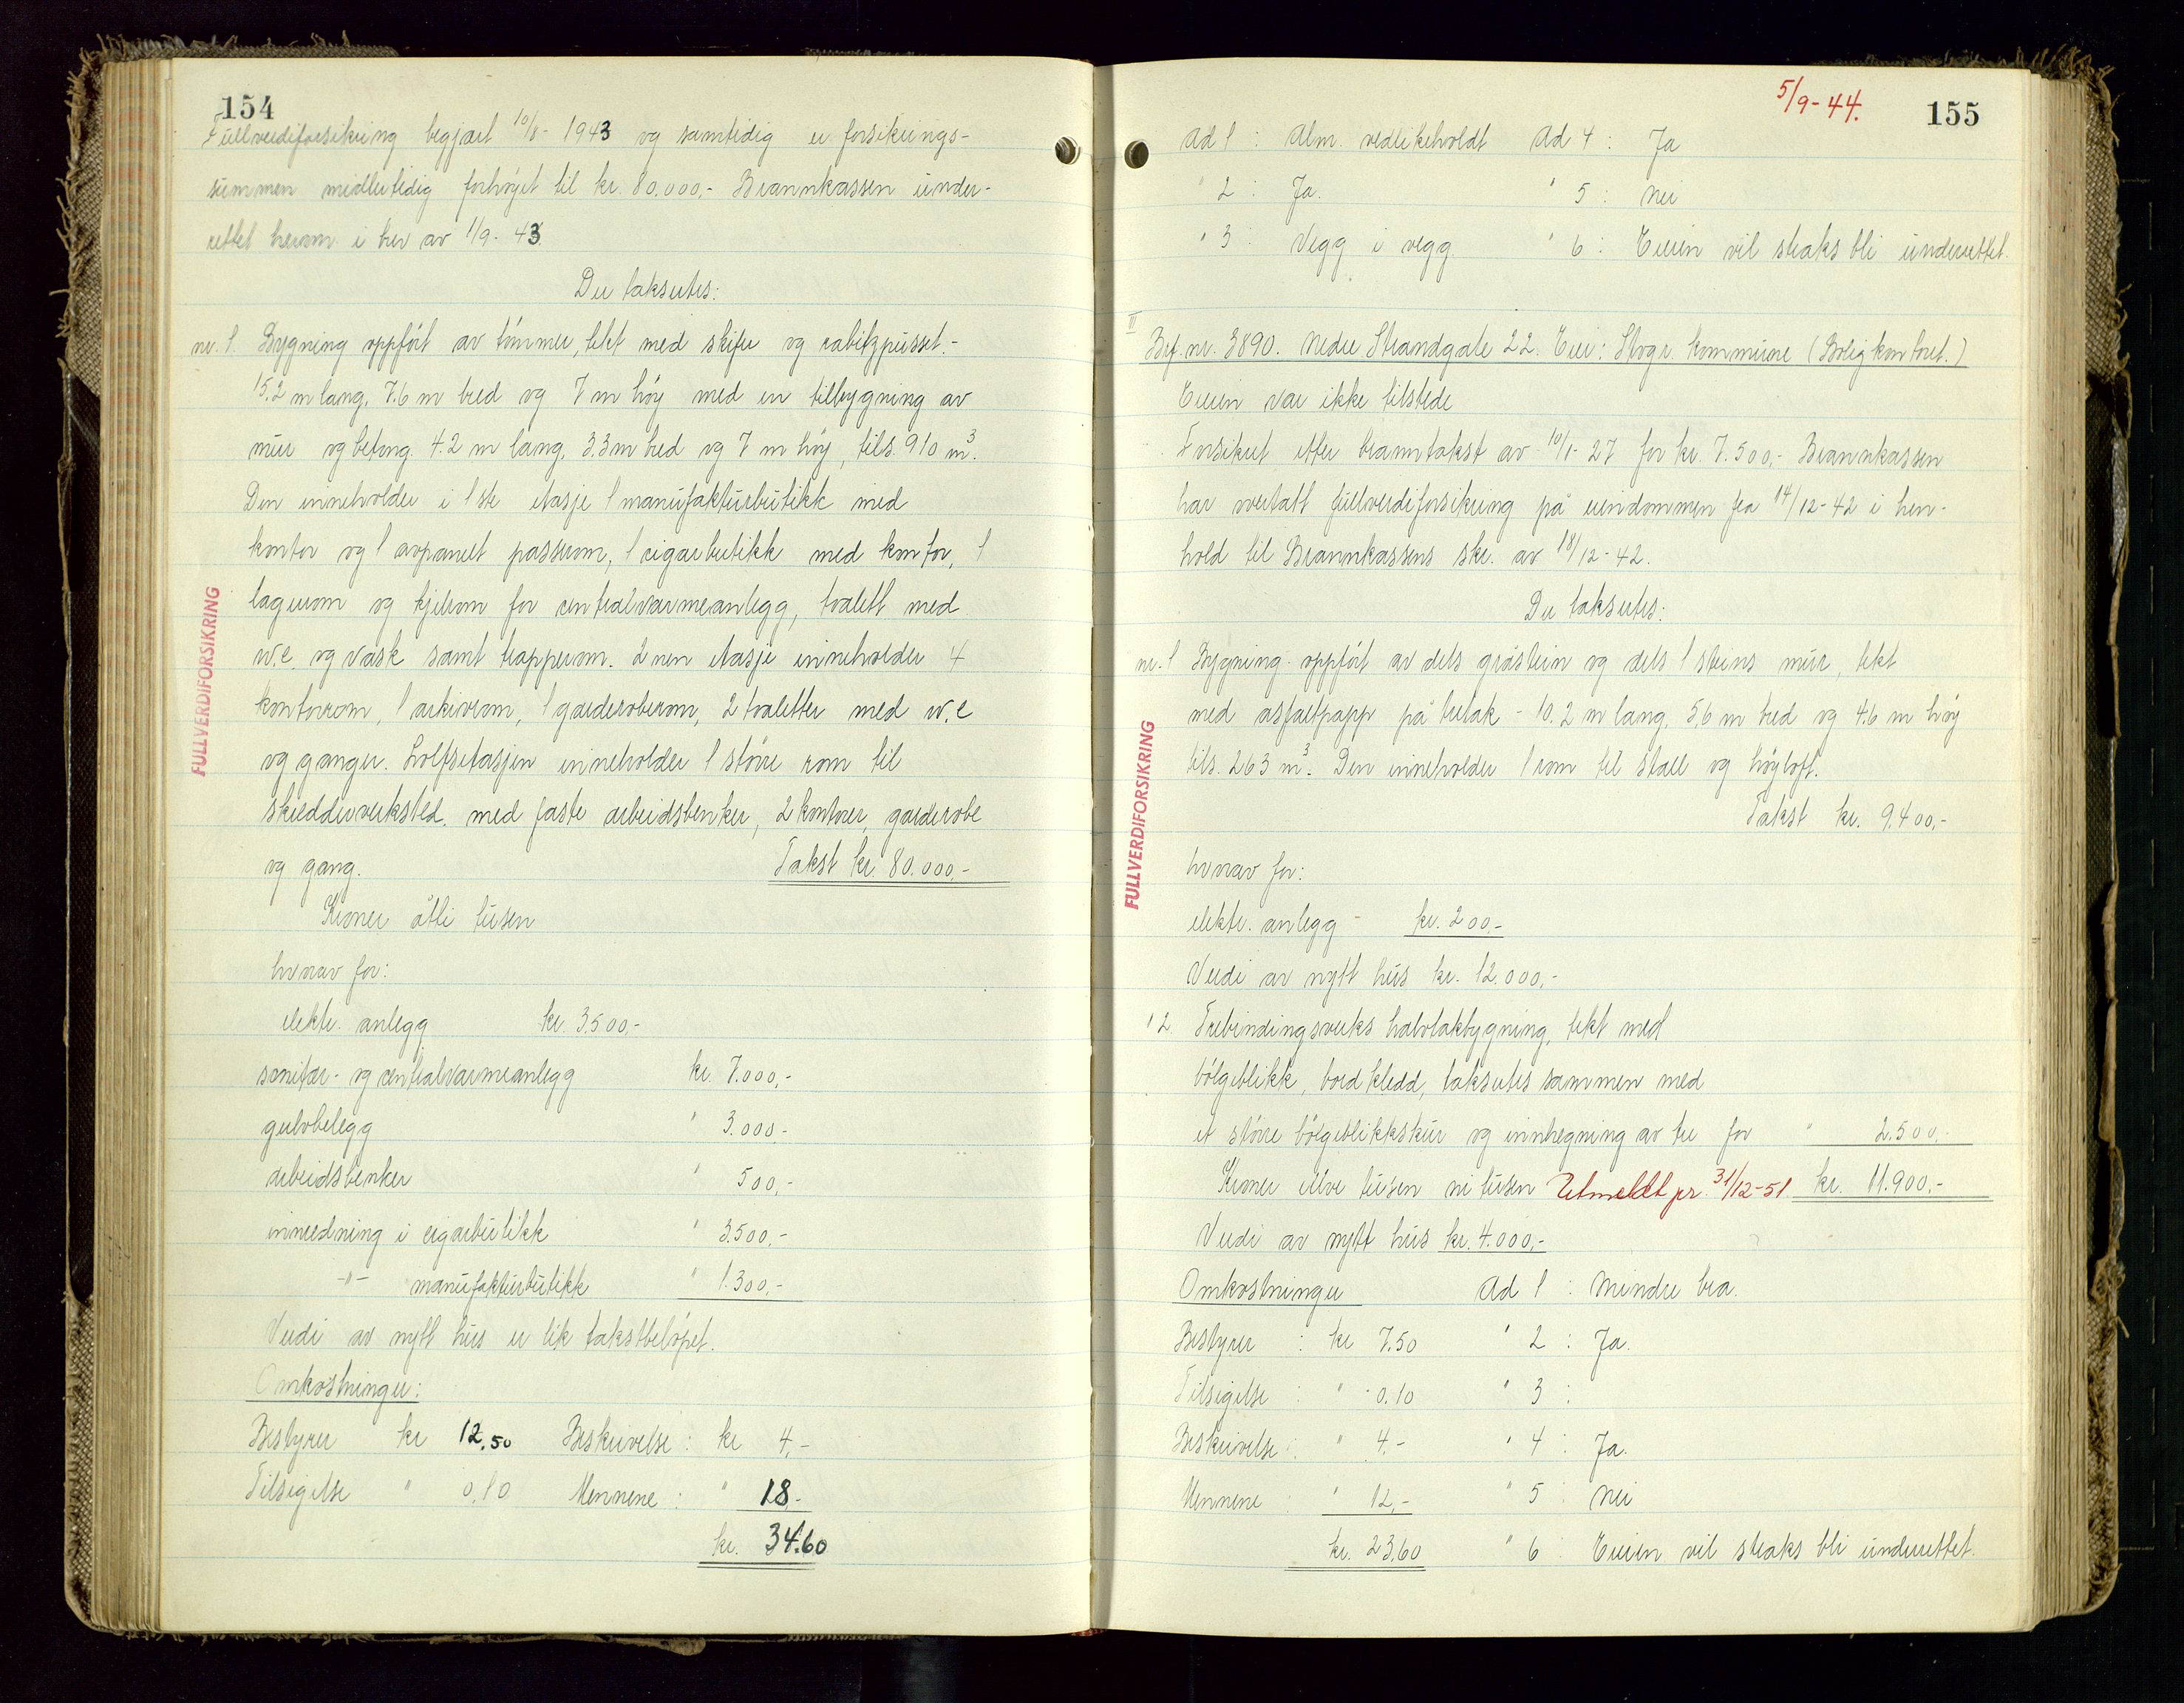 154
Fullverdiforsikring begjært 10/8- 1943 og samtidig er forsikrings-
summen midlertidig forhöyet til kr. 80.000,- Brannkassen under-
rettet herom i brev av 1/9- 43
Der takseres:
nr. 1. Bygning oppfört av tömmer, tekt med skifer og rabitzpusset.-
15.2 m lang, 7.6 m bred og 7 m höy med en tilbygning av
mur og betong. 4.2 m lang, 3.3 m bred og 7 m höy, tils. 910 m³.
Den inneholder i 1ste etasje 1 manufakturbutikk med
kontor og 1 avpanelt passrom, 1 sigarbutikk med kontor, 1
lagerom og kjelrom for centralvarmeanlegg, toalett med
w.c. og vask samt trapperom. 2nen etasje inneholder 4
kontorrom, 1 arkivrom, 1 garderoberom, 2 toaletter med w.c
og ganger. Loftsetasjen inneholder 1 större rom til
skredderverksted. med faste arbeidsbenker, 2 kontorer, garderobe
og gang. Takst kr. 80.000,-
Kroner åtti tusen
hvorav for:
elektr. anlegg kr. 3.500,-
sanitær- og centralvarmeanlegg kr. 7.000,-
gulvbelegg " 3.000-
arbeidsbenker " 500,-
innredning i sigarbutikk " 3.500,-
-"- manufakturbutikk " 1.300,-
Verdi av nytt hus er lik takstbelöpet.
Omkostninger:
Bestyrer kr 12,50 Beskrivelse: kr 4,-
Tilsigelse " 0,10 Mennene: " 18.-
kr. 34.60
FULLVERDIFORSIKRING
5/9-44.
155
Ad 1: Alm. vedlikeholdt Ad 4: Ja
" 2: Ja. " 5: Nei
" 3: Vegg i vegg " 6: Eieren vil straks bli underrettet.
II
Brf. nr. 3890. Nedre Strandgate 22. Eier: Stvgr. kommune (Boligkontoret.)
Eieren var ikke tilstede
Forsikret etter branntakst av 10/1-27 for kr. 7.500,- Brannkassen
har overtatt fullverdiforsikring på eiendommen fra 14/12-42 i hen-
hold til Brannkassens skr. av 18/12-42.
Der takseres:
nr. 1 Bygning oppfört av dels gråstein og dels 1 steins mur, tekt
med asfaltpapp på tretak - 10.2 m lang, 5,6 m bred og 4.6 m höy
tils. 263 m³. Den inneholder 1 rom til stall og höyloft.
Takst kr. 9.400,-
hvorav for:
elektr. anlegg - kr. 200.-
Verdi av nytt hus kr. 12.000,-
" 2. Trebindingsverks halvtakbygning, tekt med
bölgeblikk, bordkledd, takseres sammen med
et större bölgeblikkskur og innhegning av tre for " 2.500,-
Kroner elleve tusen ni tusen Utmeldt pr. 31/12-51. kr. 11.900,-
Verdi av nytt hus kr. 4.000,-
Omkostninger Ad 1: Mindre bra.
Bestyrer: kr 7.50 " 2: Ja.
Tilsigelse: " 0.10 " 3:
Beskrivelse: " 4.- " 4: Ja.
Mennene: " 12,- " 5: Nei
kr. 23.60 " 6: Eieren vil straks bli underrettet.
FULLVERDIFORSIKRING